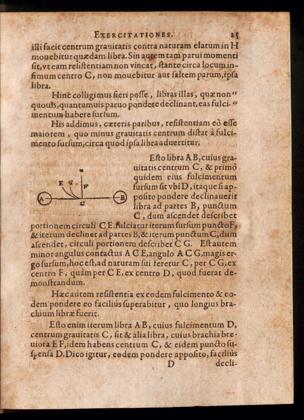 EXERCITATIONES. 25
illi facit centrum grauitatis contra naturam elatum in H
mouebitur quædam libra. Sin autem tam parui momenti
sit, vt eam resistentiam non vincat, stante circa locum in-
fimum centro C, non mouebitur aut saltem parum, ipsa
libra.
Hinc colligimus fieri posse, libras illas, quæ non"
quouis, quantumuis paruo pondere declinant, eas fulci-"
mentum habere sursum.
His addimus, cæteris paribus, resistentiam eò esse
maiorem, quo minus grauitatis centrum distat à fulci-
mento sursum, circa quod ipsa libra aduertitur.
Esto libra AB, cuius gra-
uitatis centrum C, & primò
quidem eius fulcimentum
sursum sit vbi D, itaque si ap-
posito pondere declinauerit
libra ad partes B, punctum
C, dum ascendet describet
E G F
A C B
portionem circuli CE. fulciatur iterum sursum puncto F,
& iterum declinet ad partes B, & iterum punctum C, dum
ascendet, circuli portionem describet CG. Est autem
minor angulus contactus ACE, angulo ACG. magis er-
go sursum, hoc est, ad natutam sui feretur C, per CG, ex
centro F, quàm per CE, ex centro D, quod fuerat de-
monstrandum.
Hæc autem resistentia ex eodem fulcimento & eo-
dem pondere eo facilius superabitur, quo longius bra-
chium libræ fuerit.
Esto enim iterum libra AB, cuius fulcimentum D,
centrum grauitatis C, sit & alia libra, cuius brachia bre-
uiora EF, idem habens centrum C, & eidem puncto su-
spensa D. Dico igitur, eodem pondere apposito, facilius
D decli-